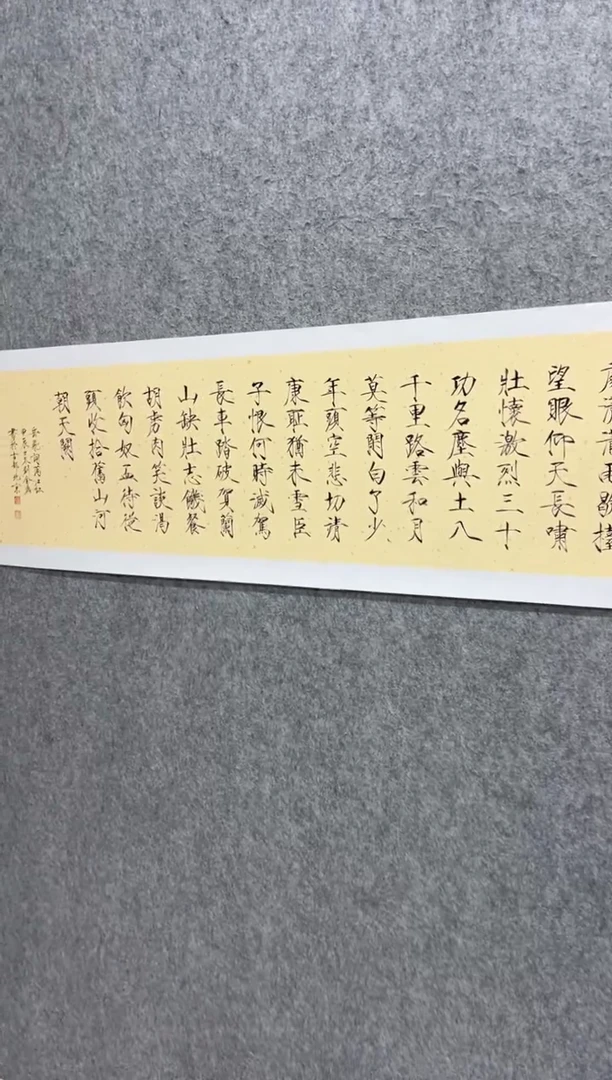 雨歇擡
望眼仰天長嘯
壯懷激烈三十
功名塵與土八
千里路雲和月
莫等閒白了少
年頭空悲切靖
康恥猶未雪臣
子恨何時滅駕
長車踏破賀蘭
山缺壯志饑餐
胡虜肉笑談渴
飲匈奴血待從
頭收拾舊山河
朝天闕
岳飛詞滿江紅
甲辰
書於古都北京